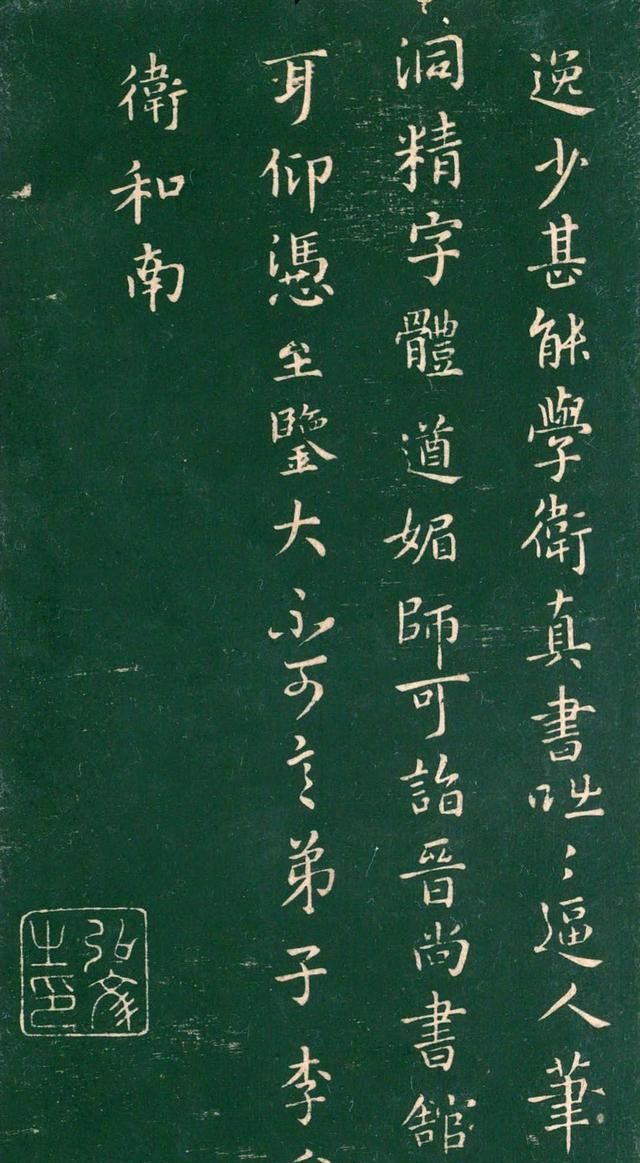 逸少甚能學衛真書咄〻逼人筆
洞精字體遒媚師可詣晉尚書館
耳仰憑至鑒大不可言弟子李
衛和南
弘文之印